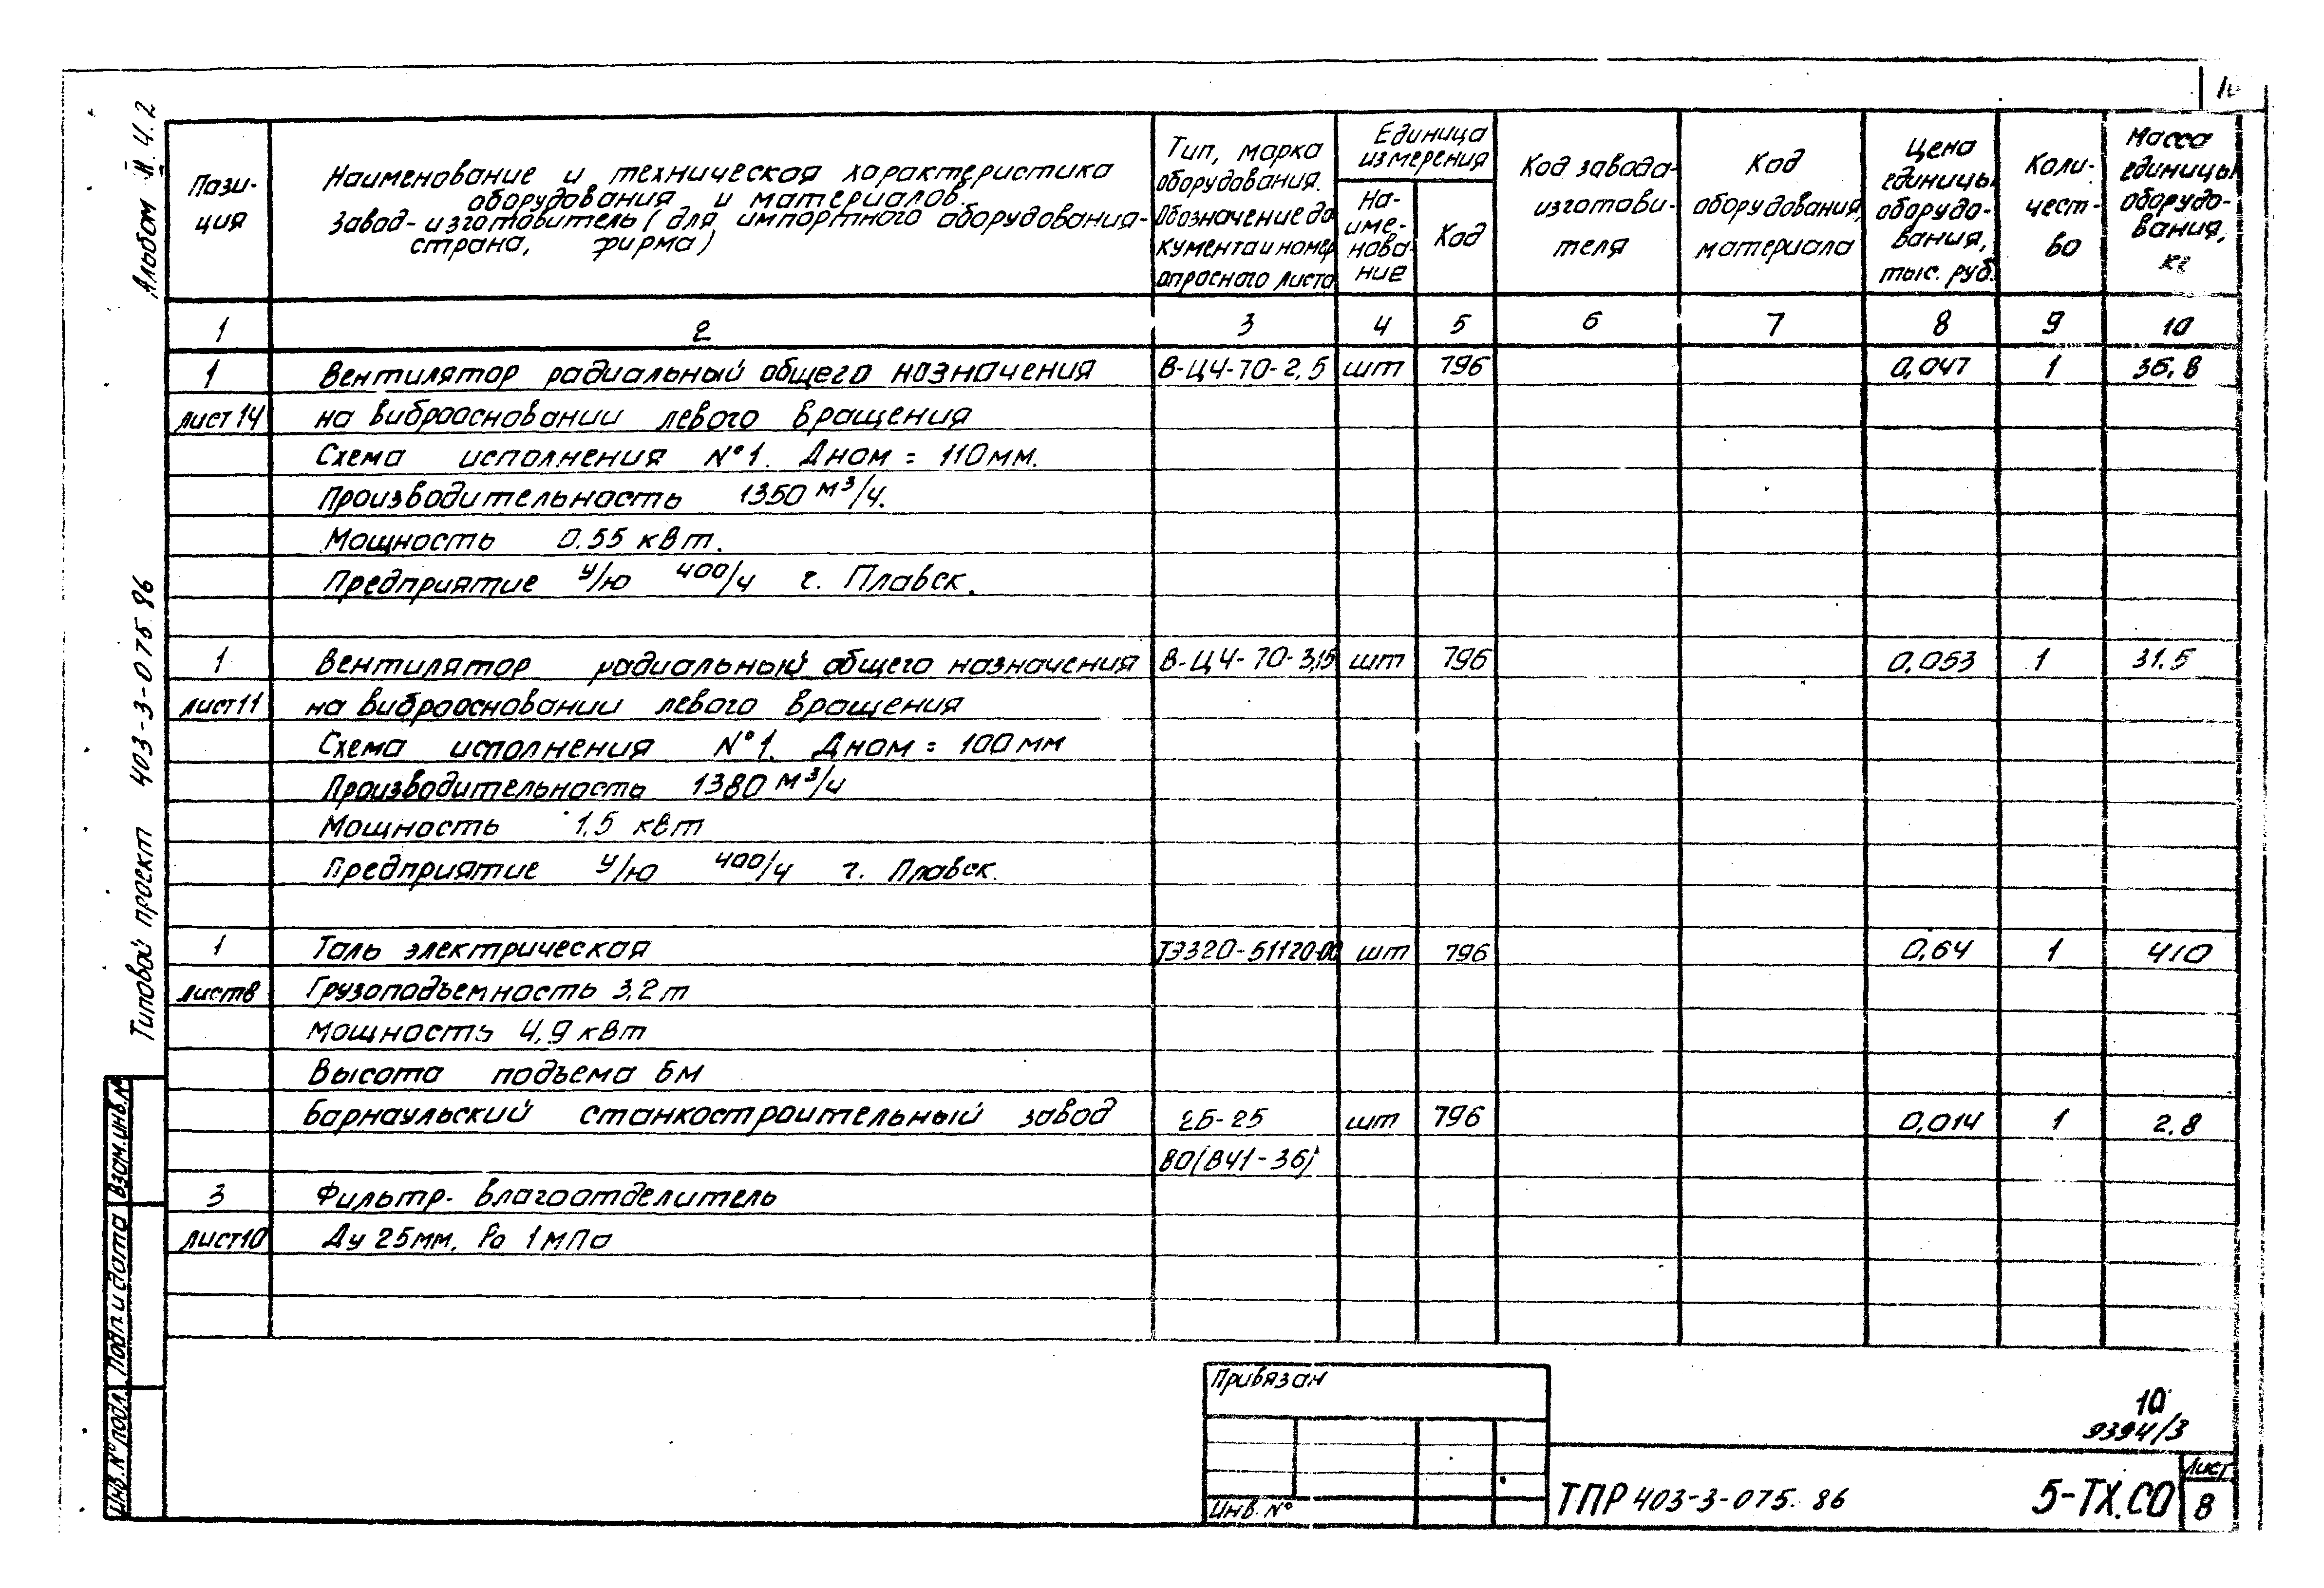 Альбом III. Ч. 2
Типовой проект 403-3-075.86
Взам.инв.№
Подп и дата
Инв.№ подл.
Пози-
ция
Наименование и техническая характеристика
оборудования и материалов.
Завод-изготовитель (для импортного оборудования-
страна, фирма)
Тип, марка
оборудования.
Обозначение до
кумента и номер
опросного листа
Единица
измерения
На-
име-
нова-
ние
Код
Код завода-
изготави-
теля
Код
оборудования,
материала
Цена
единицы
оборудо-
вания,
тыс. руб.
Коли-
чест-
во
Масса
единицы
оборудо-
вания,
кг
1 2 3 4 5 6 7 8 9 10
1 Вентилятор радиальный общего назначения В-Ц4-70-2,5 шт 796 0,047 1 36,8
лист 14 на виброосновании левого вращения
Схема исполнения №1. Дном = 110мм.
Производительность 1350 м³/ч.
Мощность 0.55 квт.
Предприятие У/Ю 400/4 г. Плавск.
1 Вентилятор радиальный общего назначения В-Ц4-70-3,15 шт 796 0,053 1 31.5
лист11 на виброосновании левого вращения
Схема исполнения №1. Дном = 100мм
Производительность 1380 м³/ч
Мощность 1,5 квт
Предприятие У/Ю 400/4 г. Плавск.
1 Таль электрическая ТЭ320-51120-00 шт 796 0,64 1 410
лист8 Грузоподъемность 3,2т
Мощность 4,9 квт
Высота подъема 6м
Барнаульский станкостроительный завод 2Б-25 шт 796 0,014 1 2.8
80(В41-36)
3 Фильтр-влагоотделитель
лист10 Ду 25мм, Ро 1мПа
Привязан
Инв. №
10
9394/3
ТПР 403-3-075.86
5-ТХ.СО
Лист
8